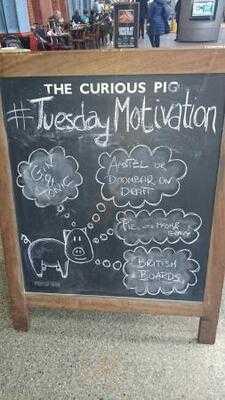 THE CURIOUS PIG
#Tuesday Motivation
GIN
&
TONIC
AMSTEL OR
DOOMBAR ON
DRAFT
PIE
BRITISH
BOARDS